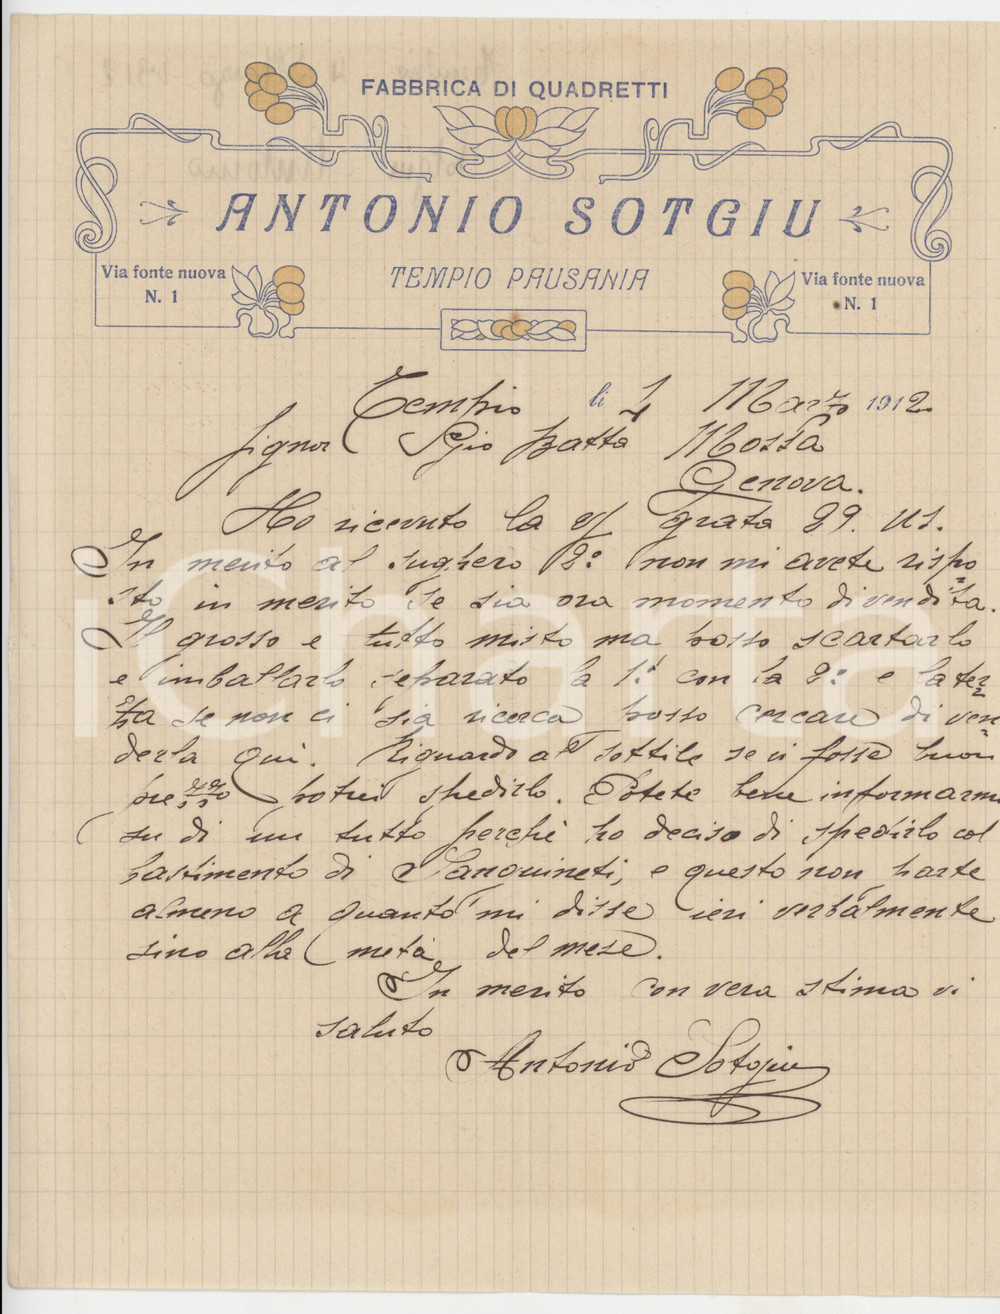 FABBRICA DI QUADRETTI
ANTONIO SOTGIU
TEMPIO PAUSANIA
Via fonte nuova
N. 1
Via fonte nuova
N. 1
Tempio li 4 Marzo 1912
Signor Gio Batta Mossa
Genova.
Ho ricevuto la v/ grata 29. us.
In merito al sughero 2ª non mi avete rispo
sto in merito se sia ora momento di vendita.
Il grosso e tutto misto ma posso scartarlo
e imballarlo separato la 1ª con la 2ª e la ter
za se non ci sia ricerca posso cercare di ven
derla qui. Riguardo al sottile se vi fosse buon
prezzo potrei spedirlo. Potete bene informarmi
su di un tutto perchè ho deciso di spedirlo col
bastimento di Sanguineti, e questo non parte
almeno a quanto mi disse ieri verbalmente
sino alla metà del mese.
In merito con vera stima vi
saluto
Antonio Sotgiu
iCharta